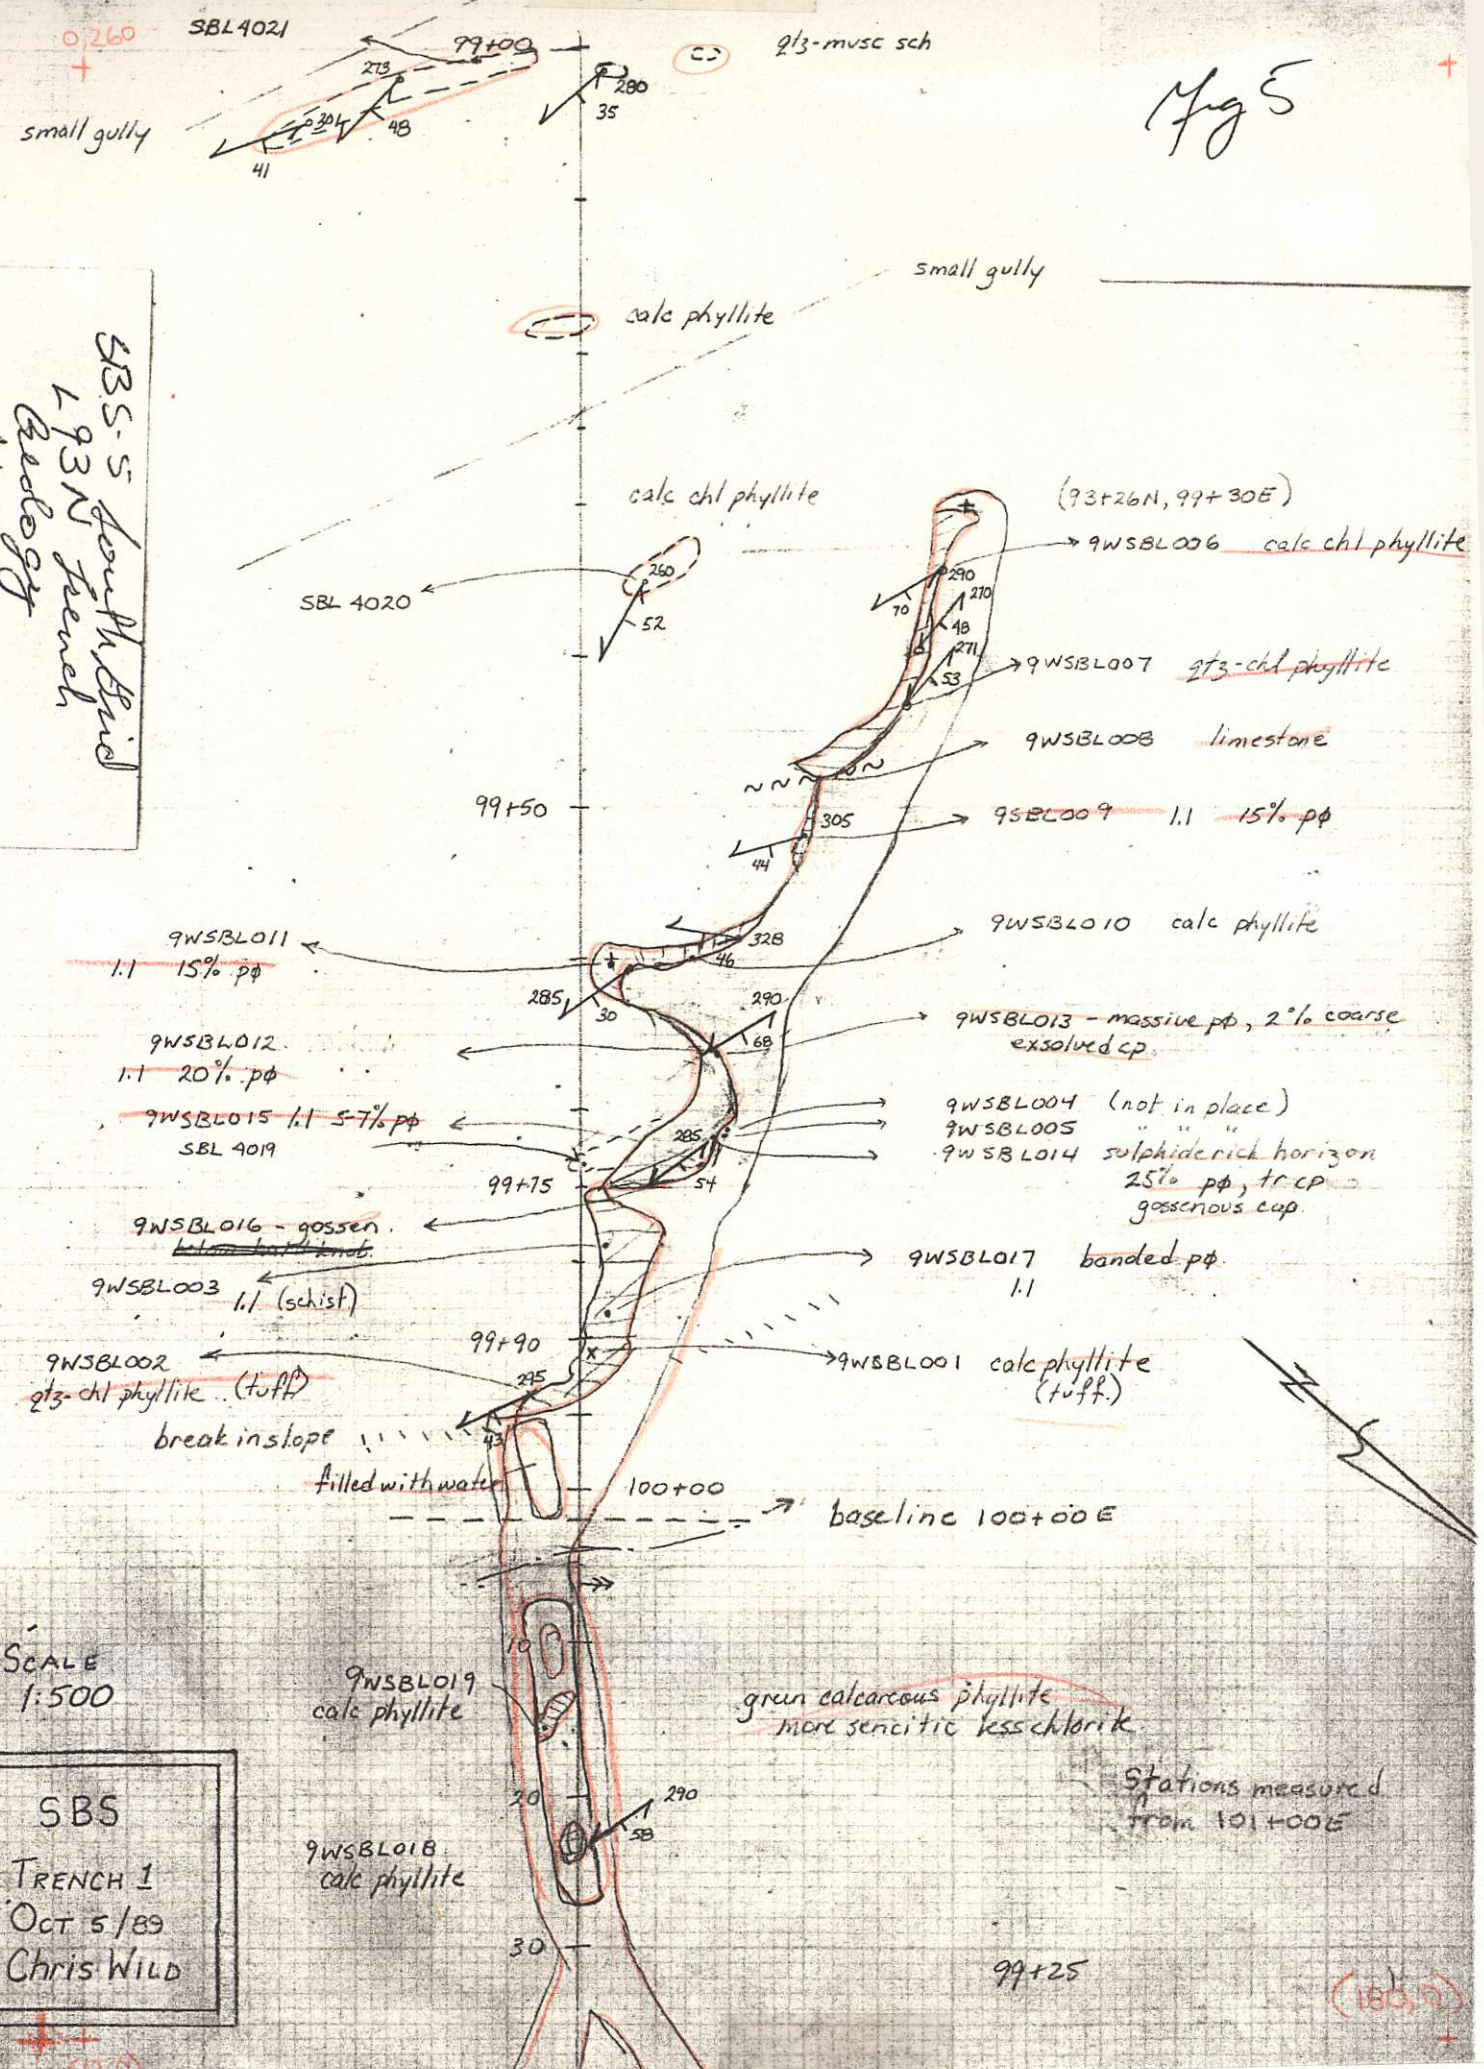 0,260
SBL4021
99+00
qtz-musc sch
Fig 5
273
280
35
304
48
41
small gully
small gully
calc phyllite
SBS-5 South Grid
L93N Trench
Geology
calc chl phyllite
(93+26N, 99+30E)
9WSBL006 calc chl phyllite
260
290
SBL 4020
70
210
52
48
271
9WSBL007 qtz-chl phyllite
53
9WSBL008 limestone
99+50
305
9SBL009 1.1 15% pϕ
44
9WSBL010 calc phyllite
9WSBL011
1.1 15% pϕ
328
46
285
30
290
68
9WSBL013 - massive pϕ, 2% coarse
exsolved cp
9WSBL012
1.1 20% pϕ
9WSBL015 1.1 5-7% pϕ
SBL 4019
9WSBL004 (not in place)
9WSBL005 " " "
9WSBL014 sulphide rich horizon
25% pϕ, tr cp
gossenous cap
285
54
99+75
9WSBL016 - gossen
below hard knob
9WSBL003 1.1 (schist)
9WSBL017 banded pϕ
1.1
99+90
9WSBL002
qtz-chl phyllite (tuff)
9WSBL001 calc phyllite
(tuff)
295
43
break in slope
filled with water
100+00
baseline 100+00E
10
SCALE
1:500
9WSBL019
calc phyllite
green calcareous phyllite
more sericitic less chlorite
20
290
58
Stations measured
from 101+00E
9WSBL018
calc phyllite
SBS
TRENCH 1
OCT 5/89
Chris WILD
30
99+25
(180,0)
(0,0)